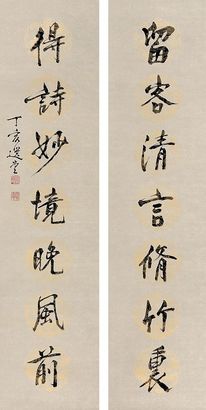 留客清言脩竹裏
得詩妙境晚風前
丁亥選堂